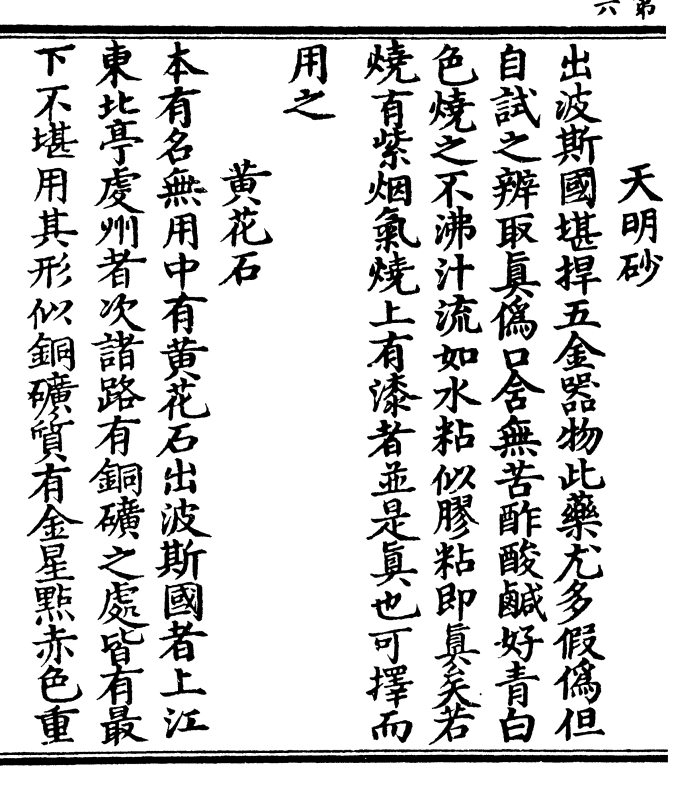 第六
天明砂
出波斯國堪捍五金器物此藥尤多假僞但
自試之辨取眞僞口含無苦酢酸鹹好青白
色燒之不沸汁流如水粘似膠粘即眞矣若
燒有紫烟氣燒上有漆者並是眞也可擇而
用之
黄花石
本有名無用中有黄花石出波斯國者上江
東北亭處州者次諸路有銅礦之處皆有最
下不堪用其形似銅礦質有金星點赤色重